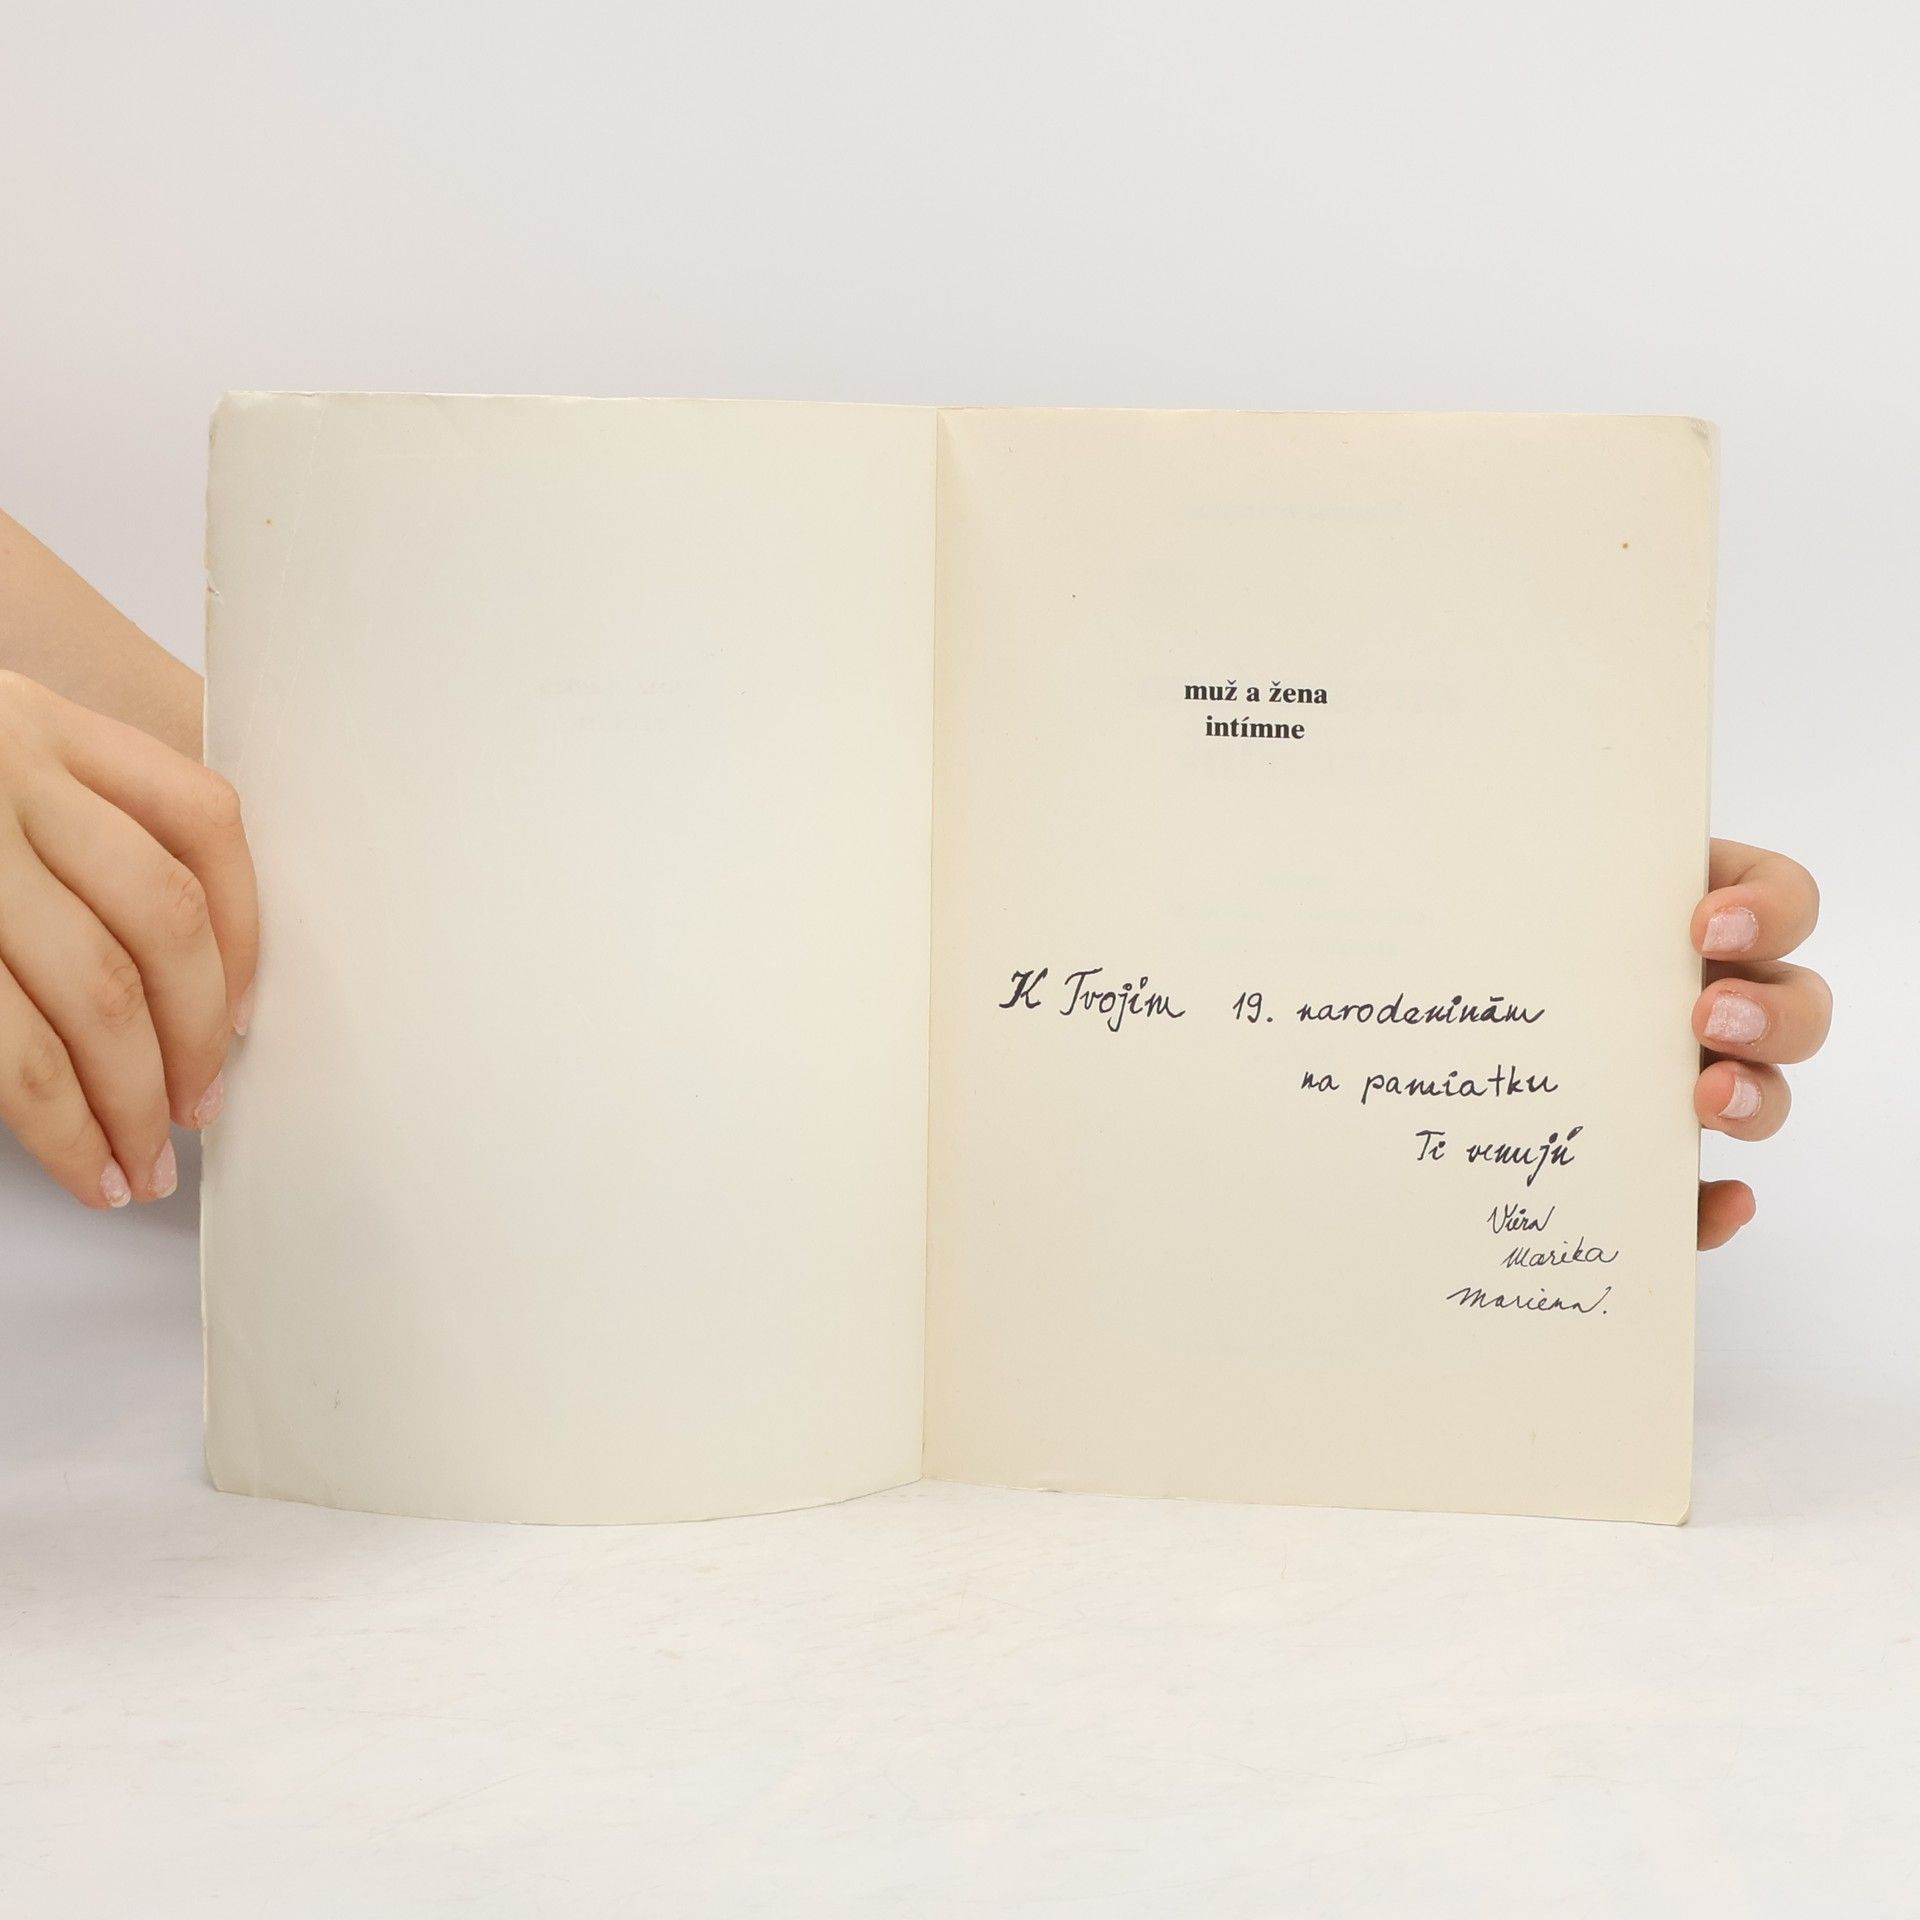 muž a žena
intímne
K Tvojím 19. narodeninám
na pamiatku
Ti venujú
Viera
Marika
Mariena.